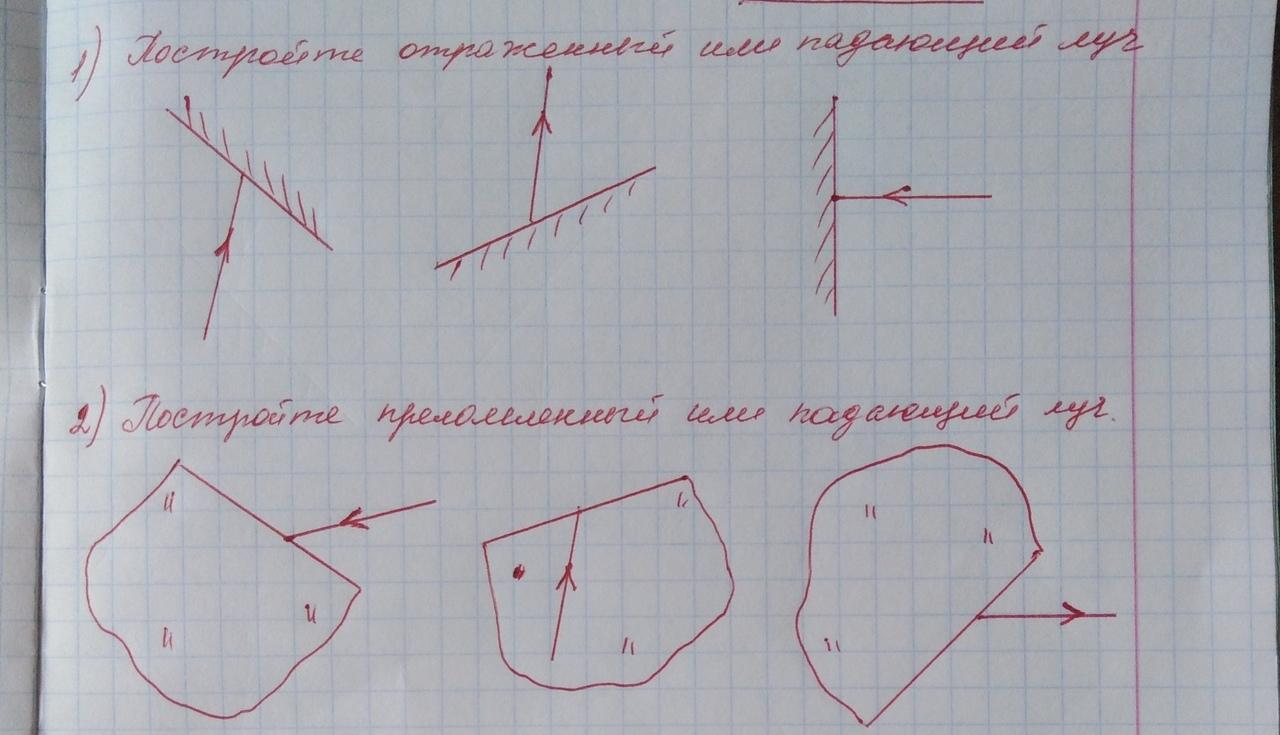 1) Постройте отраженный или падающий луч
2) Постройте преломленный или падающий луч.